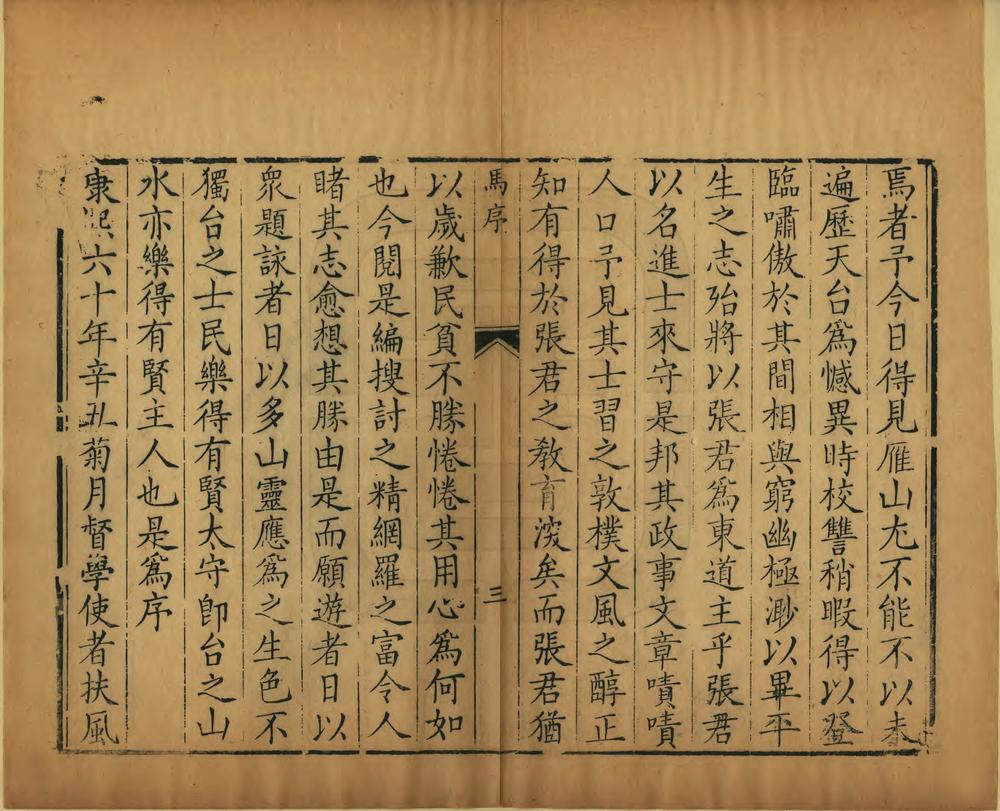 焉者予今日得見雁山尢不能不以未
遍歷天台爲憾異時校讐稍暇得以登
臨嘯傲於其間相與窮幽極渺以畢平
生之志殆將以張君爲東道主乎張君
以名進士來守是邦其政事文章嘖嘖
人口予見其士習之敦樸文風之醇正
知有得於張君之教育深矣而張君猶
馬序
三
以歲歉民貧不勝惓惓其用心爲何如
也今閱是編搜討之精網羅之富令人
睹其志愈想其勝由是而願遊者日以
衆題詠者日以多山靈應爲之生色不
獨台之士民樂得有賢太守卽台之山
水亦樂得有賢主人也是爲序
康熙六十年辛丑菊月督學使者扶風